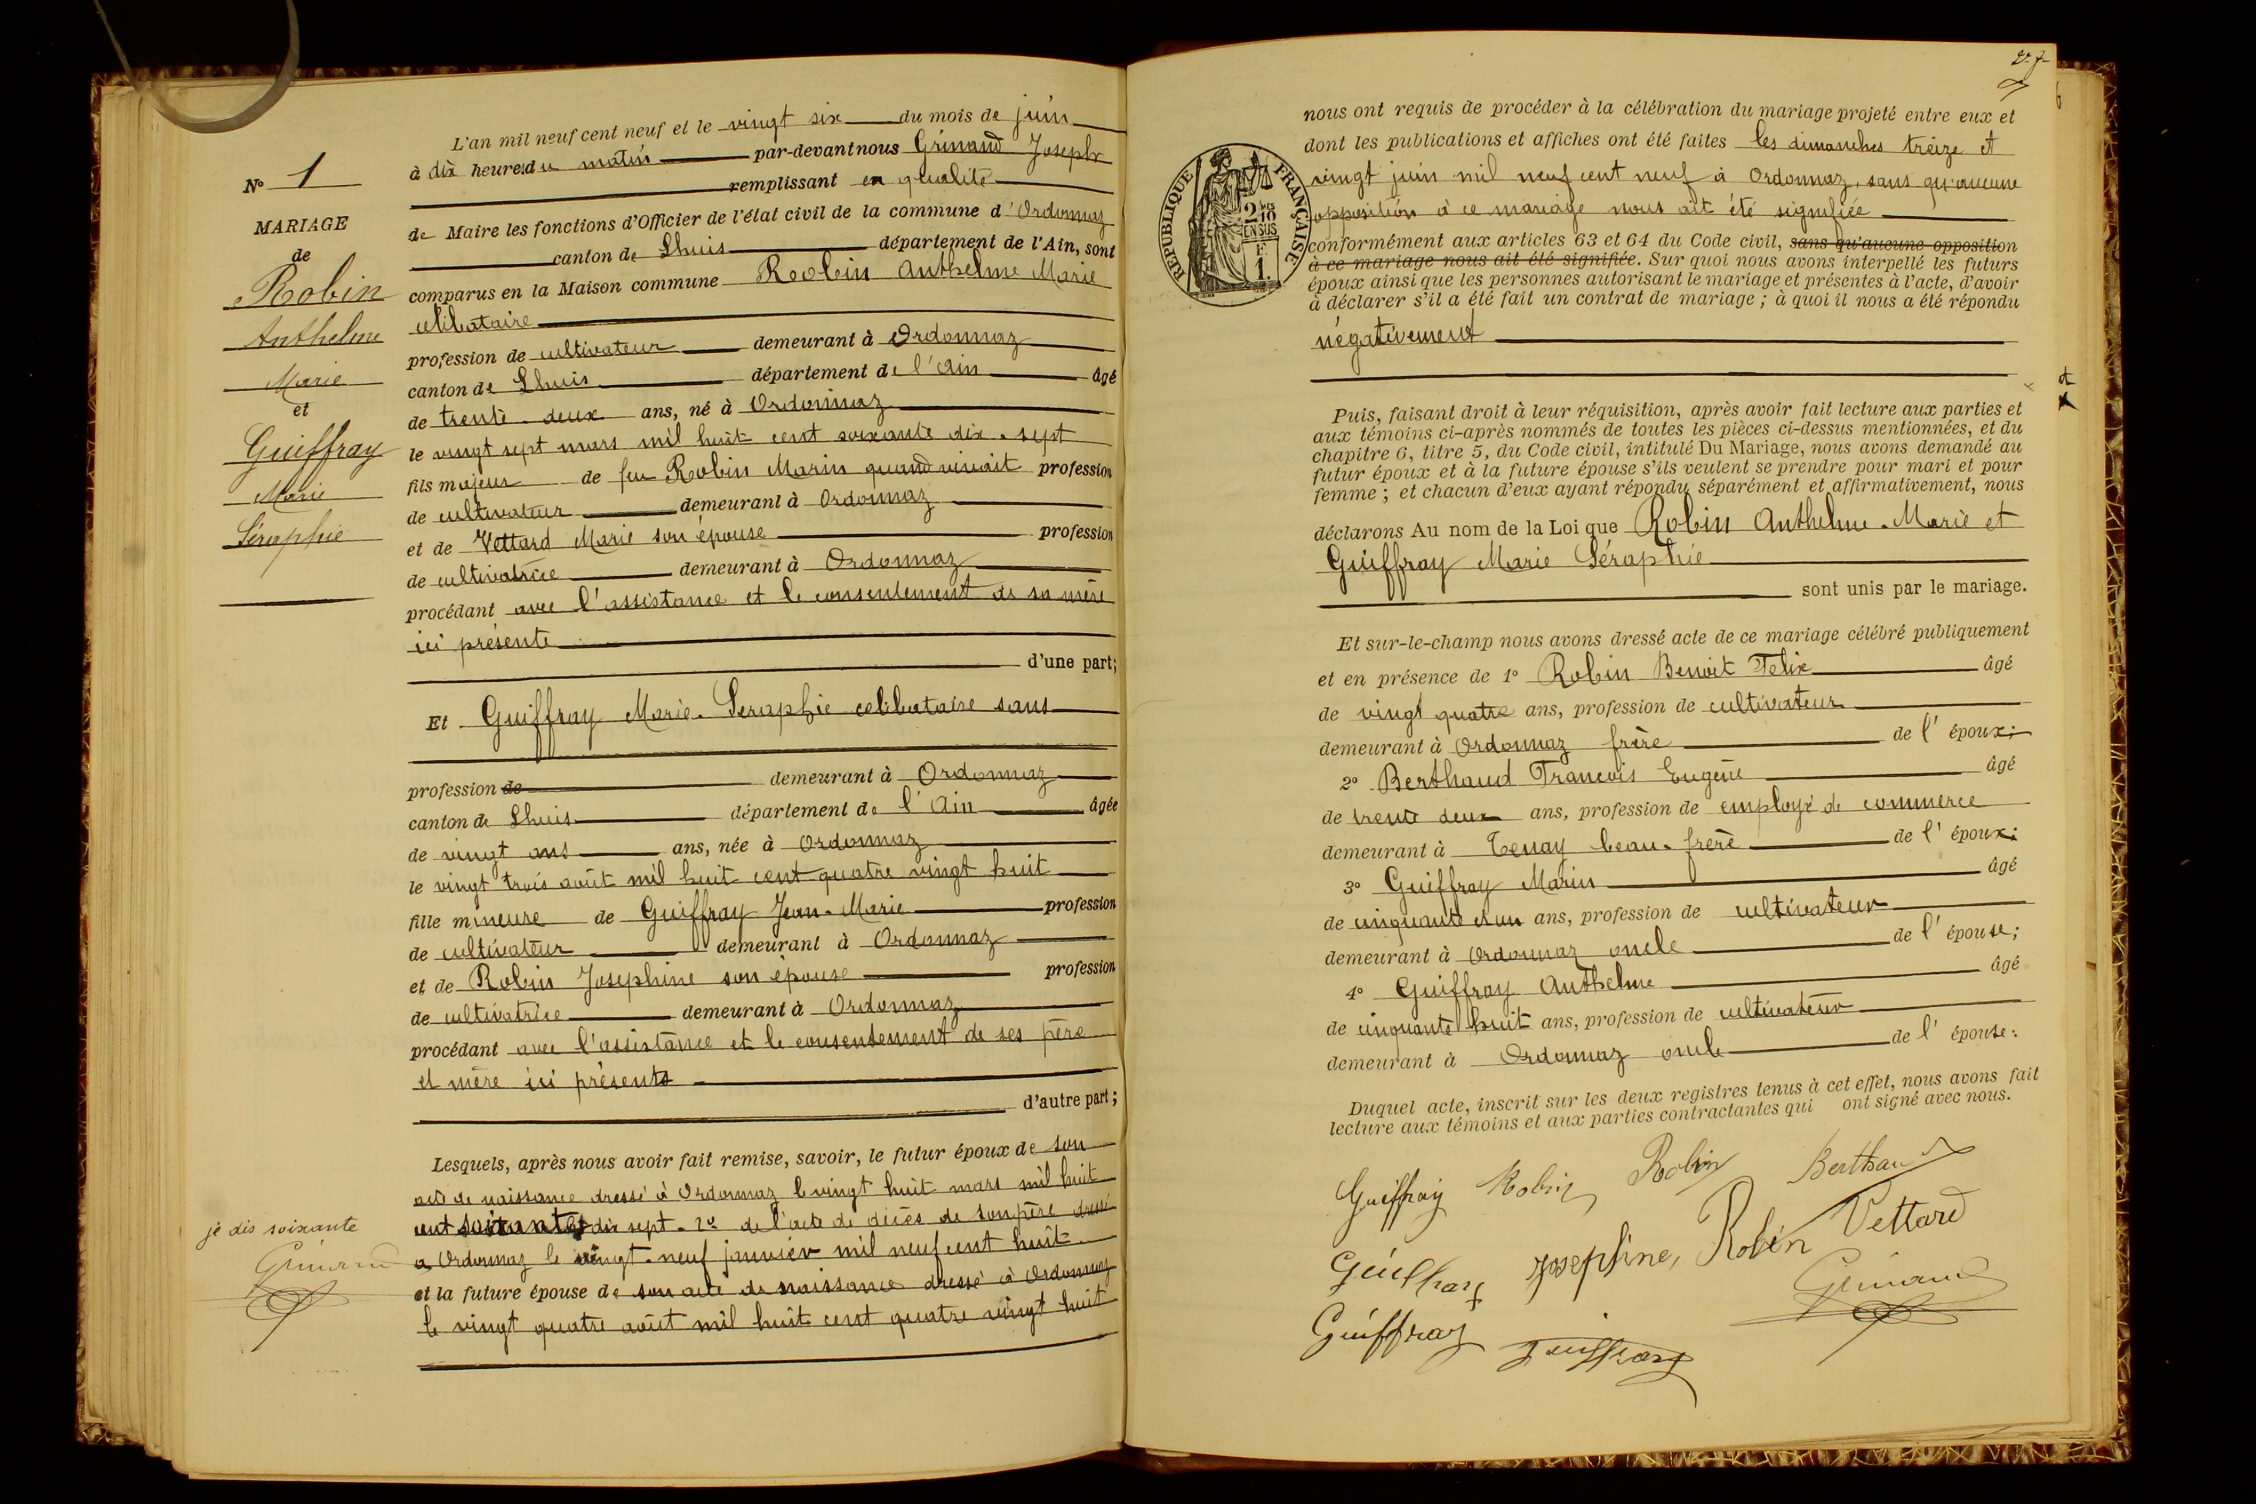 N° 1
MARIAGE
de
Robin
Anthelme
Marie
et
Guiffray
Marie
Séraphie
L'an mil neuf cent neuf et le vingt six du mois de juin
à dix heures du matin par-devant nous Grinand Joseph
remplissant en qualité
de Maire les fonctions d'Officier de l'état civil de la commune d'Ordonnaz
canton de Lhuis département de l'Ain, sont
comparus en la Maison commune Robin Anthelme Marie
célibataire
profession de cultivateur demeurant à Ordonnaz
canton de Lhuis département de l'Ain âgé
de trente-deux ans, né à Ordonnaz
le vingt sept mars mil huit cent soixante dix-sept
fils majeur de feu Robin Marin quand vivait profession
de cultivateur demeurant à Ordonnaz
et de Vettard Marie son épouse profession
de cultivatrice demeurant à Ordonnaz
procédant avec l'assistance et le consentement de sa mère
ici présente
d'une part;
Et Guiffray Marie-Seraphie celibataire sans
profession de demeurant à Ordonnaz
canton de Lhuis département de l'Ain âgée
de vingt ans ans, née à Ordonnaz
le vingt trois août mil huit cent quatre vingt huit
fille mineure de Guiffray Jean-Marie profession
de cultivateur demeurant à Ordonnaz
et de Robin Josephine son épouse profession
de cultivatrice demeurant à Ordonnaz
procédant avec l'assistance et le consentement de ses père
et mère ici présents
d'autre part;
Lesquels, après nous avoir fait remise, savoir, le futur époux de son
acte de naissance dressé à Ordonnaz le vingt huit mars mil huit
cent soixante dix sept. 2° de l'acte de décès de son père dressé
je dis soixante
Grinand
a Ordonnaz le vingt-neuf janvier mil neuf cent huit
et la future épouse de son acte de naissance dressé à Ordonnaz
le vingt quatre août mil huit cent quatre vingt huit
nous ont requis de procéder à la célébration du mariage projeté entre eux et
dont les publications et affiches ont été faites les dimanches treize et
vingt juin mil neuf cent neuf à Ordonnaz, sans qu'aucune
opposition à ce mariage nous ait été signifiée
RÉPUBLIQUE FRANÇAISE
2/10
EN SUS
1.
conformément aux articles 63 et 64 du Code civil, sans qu'aucune opposition
à ce mariage nous ait été signifiée. Sur quoi nous avons interpellé les futurs
époux ainsi que les personnes autorisant le mariage et présentes à l'acte, d'avoir
à déclarer s'il a été fait un contrat de mariage ; à quoi il nous a été répondu
négativement
Puis, faisant droit à leur réquisition, après avoir fait lecture aux parties et
aux témoins ci-après nommés de toutes les pièces ci-dessus mentionnées, et du
chapitre 6, titre 5, du Code civil, intitulé Du Mariage, nous avons demandé au
futur époux et à la future épouse s'ils veulent se prendre pour mari et pour
femme ; et chacun d'eux ayant répondu séparément et affirmativement, nous
déclarons Au nom de la Loi que Robin Anthelme-Marie et
Guiffray Marie Séraphie
sont unis par le mariage.
Et sur-le-champ nous avons dressé acte de ce mariage célébré publiquement
et en présence de 1° Robin Benoit Felix âgé
de vingt quatre ans, profession de cultivateur
demeurant à Ordonnaz frère de l'époux;
2° Berthaud Francois Eugene âgé
de trente deux ans, profession de employé de commerce
demeurant à Tenay beau-frère de l'époux;
3° Guiffray Marin âgé
de cinquante et un ans, profession de cultivateur
demeurant à Ordonnaz oncle de l'épouse;
4° Guiffray Anthelme âgé
de cinquante huit ans, profession de cultivateur
demeurant à Ordonnaz oncle de l'épouse.
Duquel acte, inscrit sur les deux registres tenus à cet effet, nous avons fait
lecture aux témoins et aux parties contractantes qui ont signé avec nous.
Guiffray Robin Robin Berthaud
Guiffray Josephine, Robin Vettard
Grinand
Guiffray Guiffray